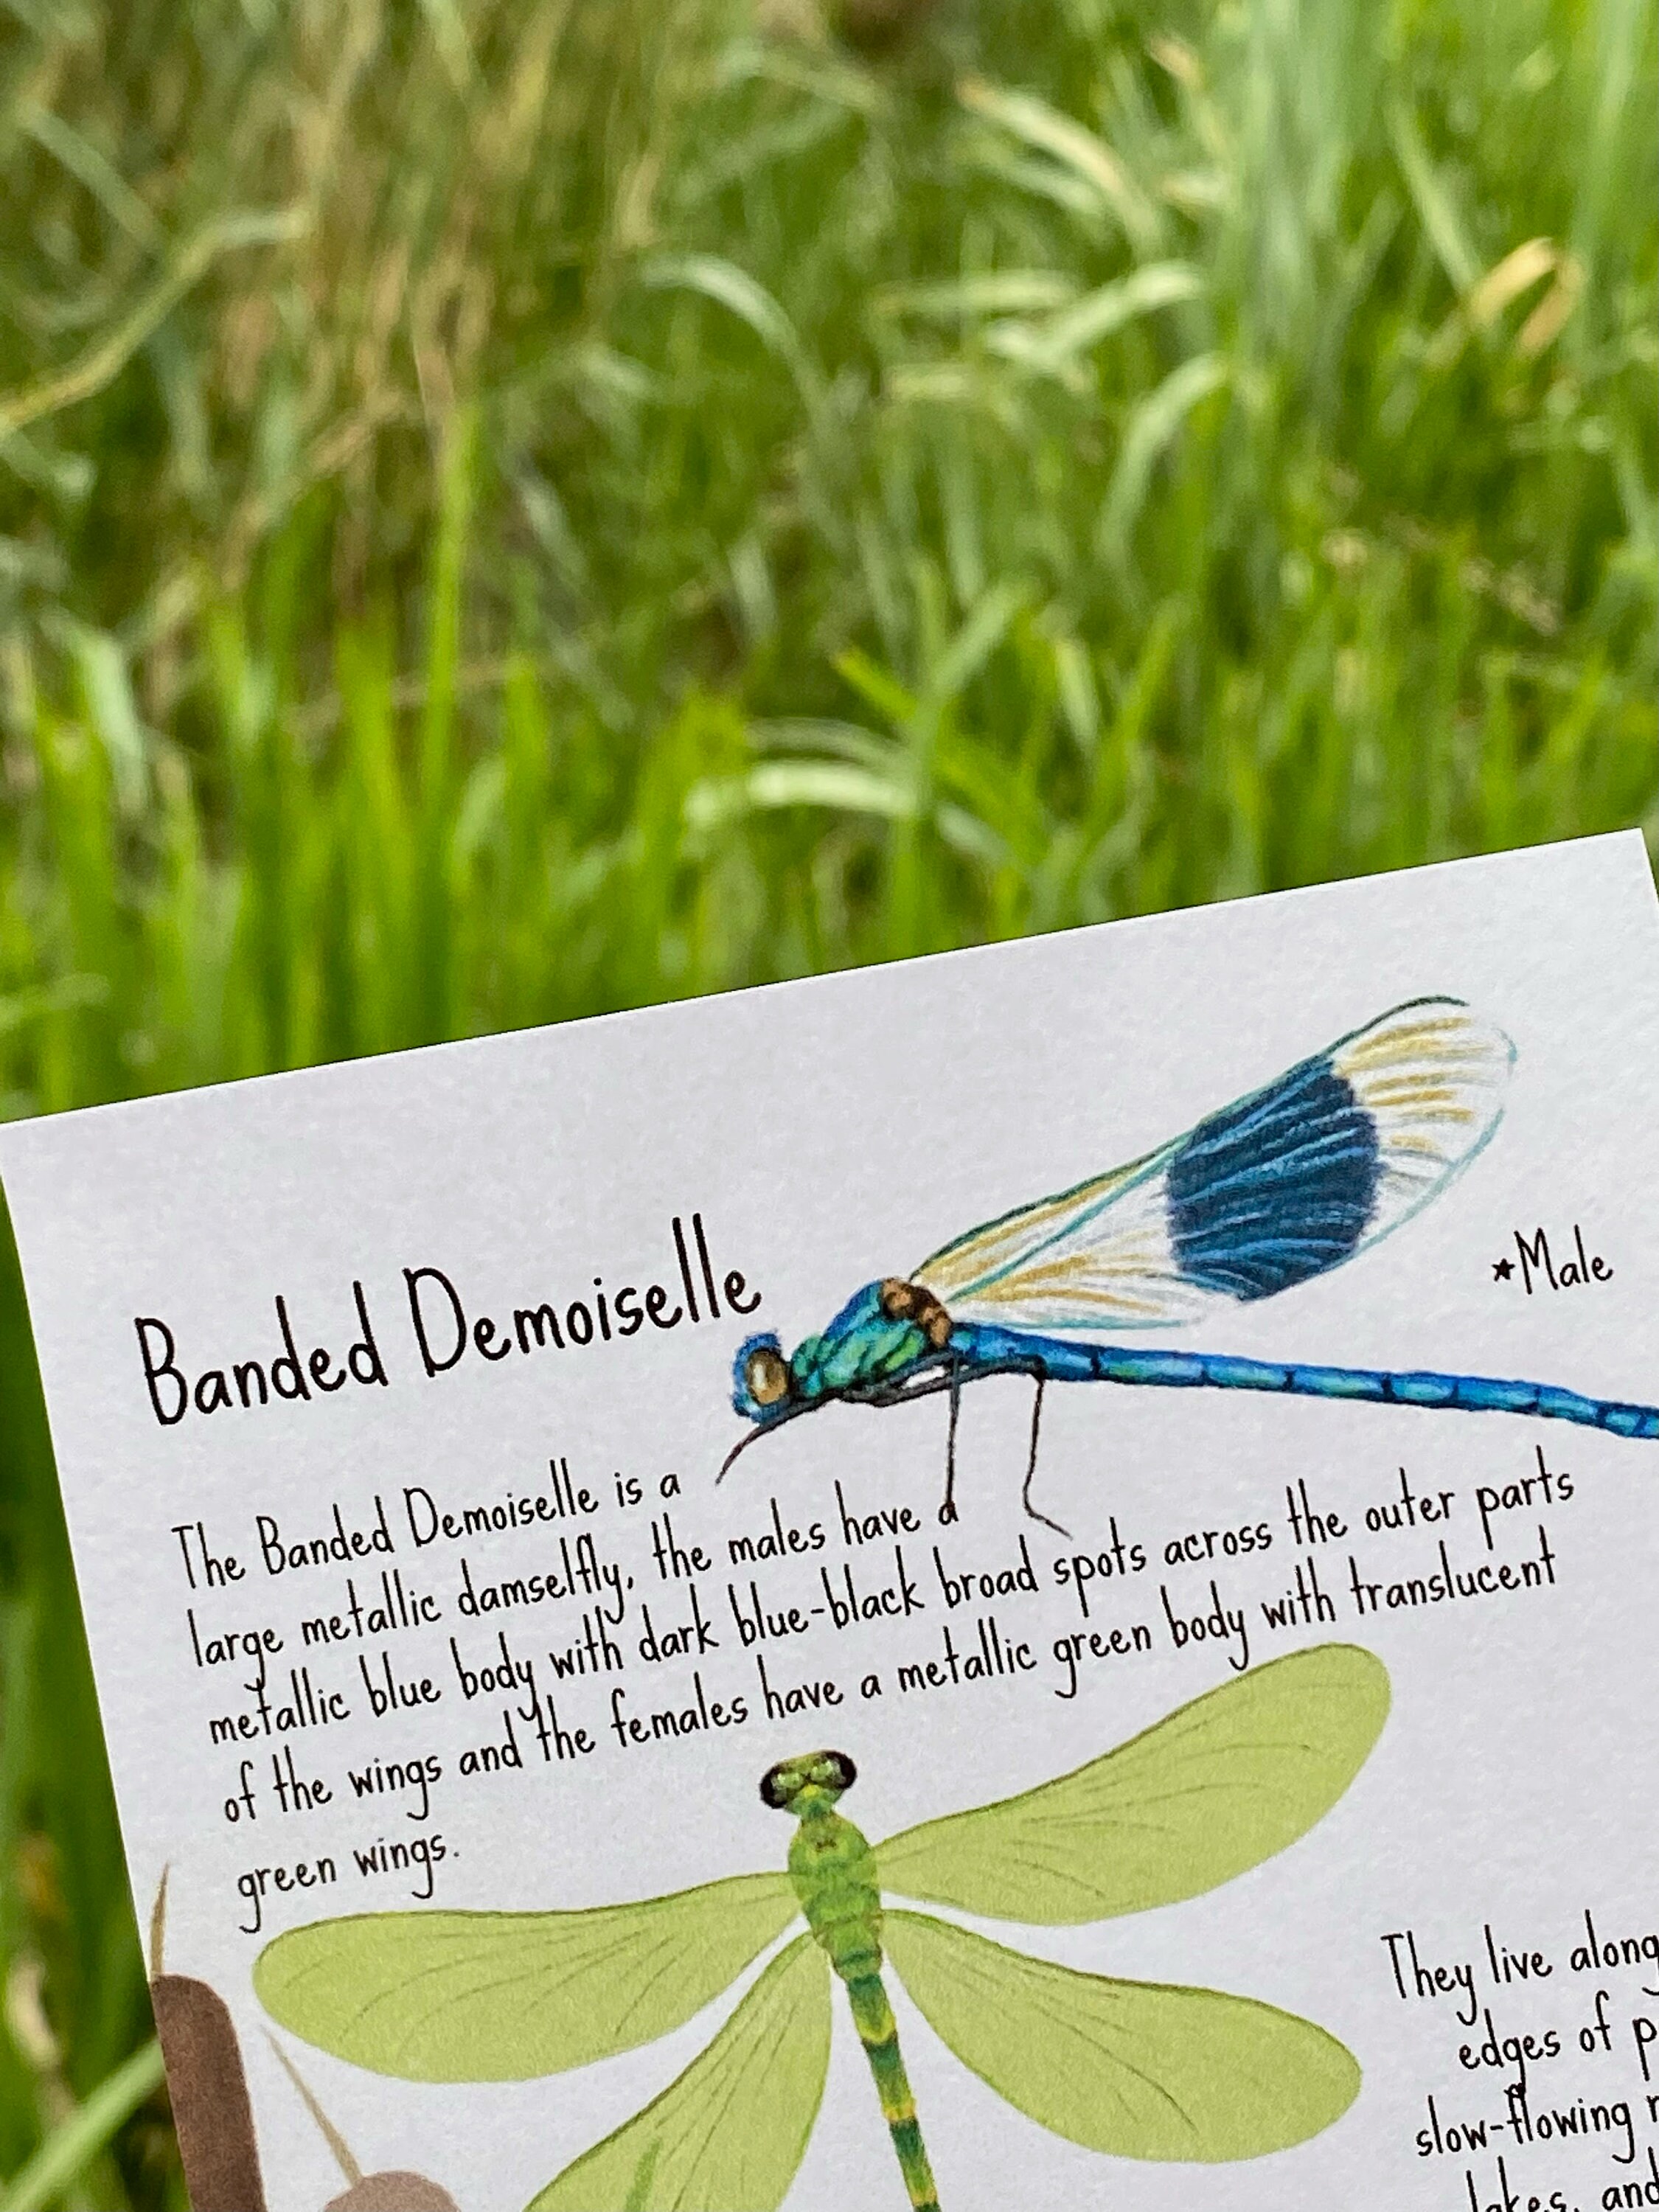 Banded Demoiselle
*Male
The Banded Demoiselle is a
large metallic damselfly, the males have a
metallic blue body with dark blue-black broad spots across the outer parts
of the wings and the females have a metallic green body with translucent
green wings.
They live along
edges of
slow-flowing
lakes, and